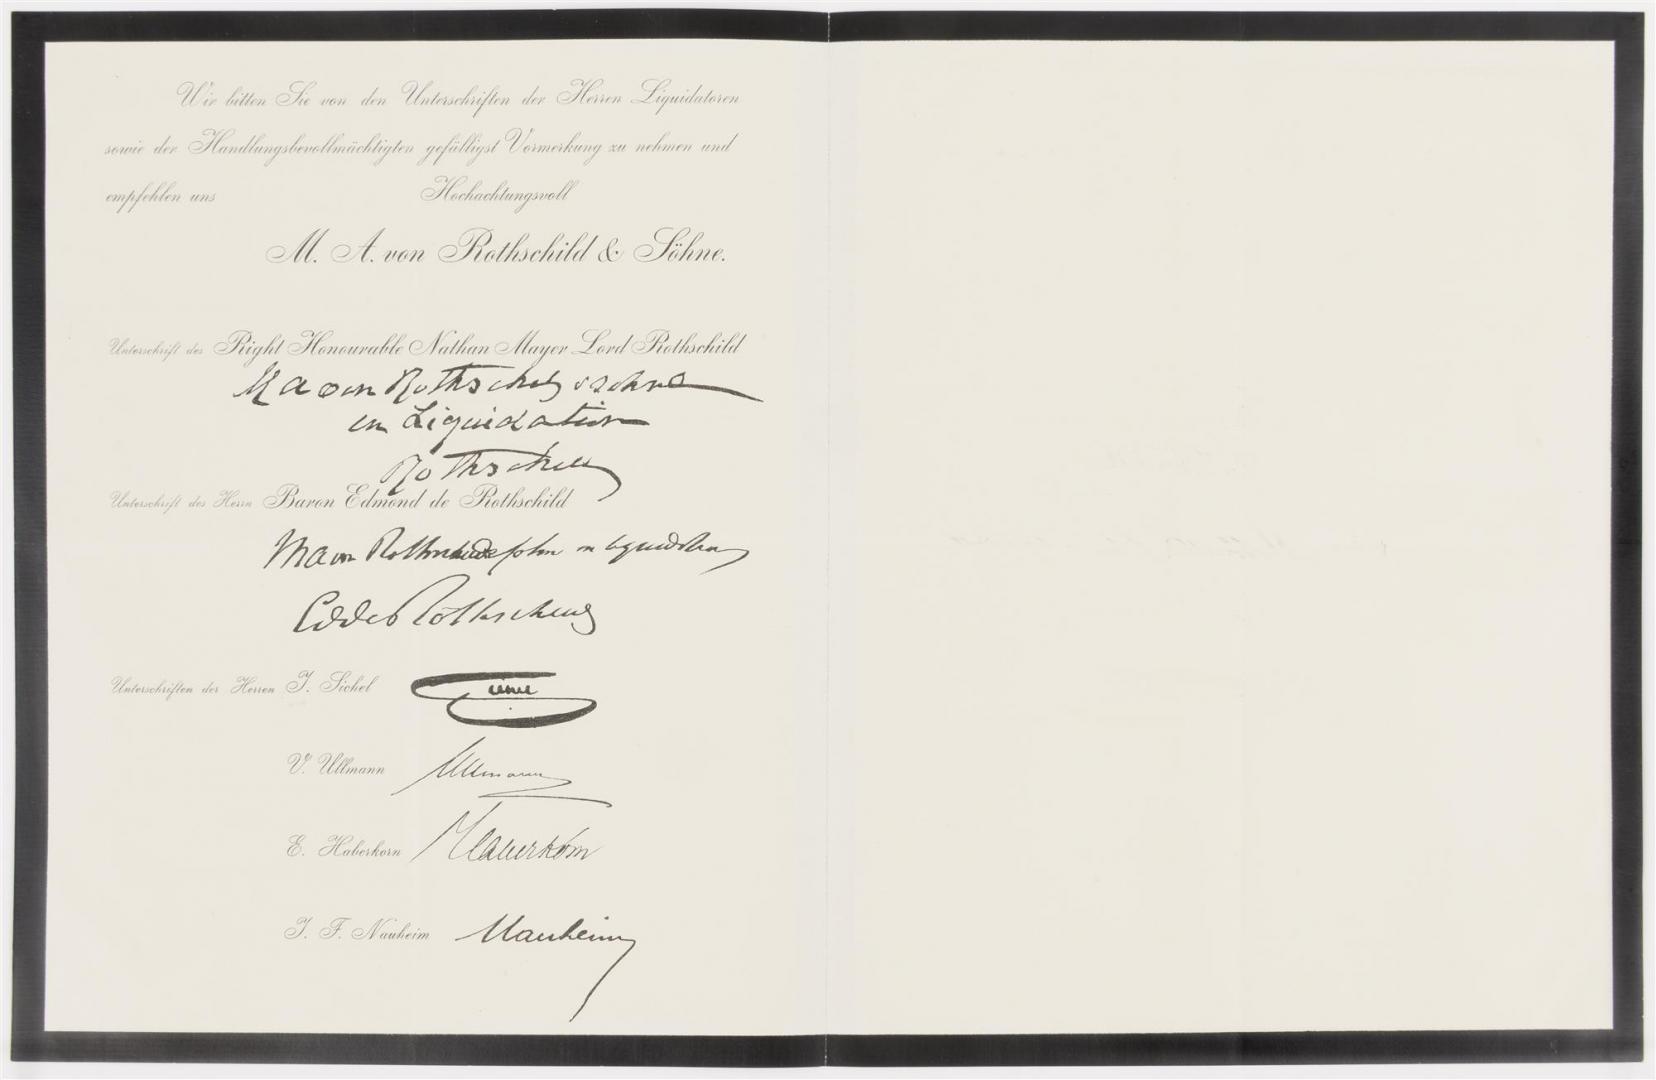 Wir bitten Sie von den Unterschriften der Herren Liquidatoren
sowie der Handlungsbevollmächtigten gefälligst Vormerkung zu nehmen und
empfehlen uns Hochachtungsvoll
M. A. von Rothschild & Söhne.
Unterschrift des Right Honourable Nathan Mayer Lord Rothschild
M A von Rothschild & Söhne
in Liquidation
Rothschild
Unterschrift des Herrn Baron Edmond de Rothschild
M A von Rothschild & Söhne in Liquidation
Ed de Rothschild
Unterschriften der Herren J. Sichel
V. Ullmann Ullmann
E. Haberkorn Haberkorn
J. F. Nauheim Nauheim